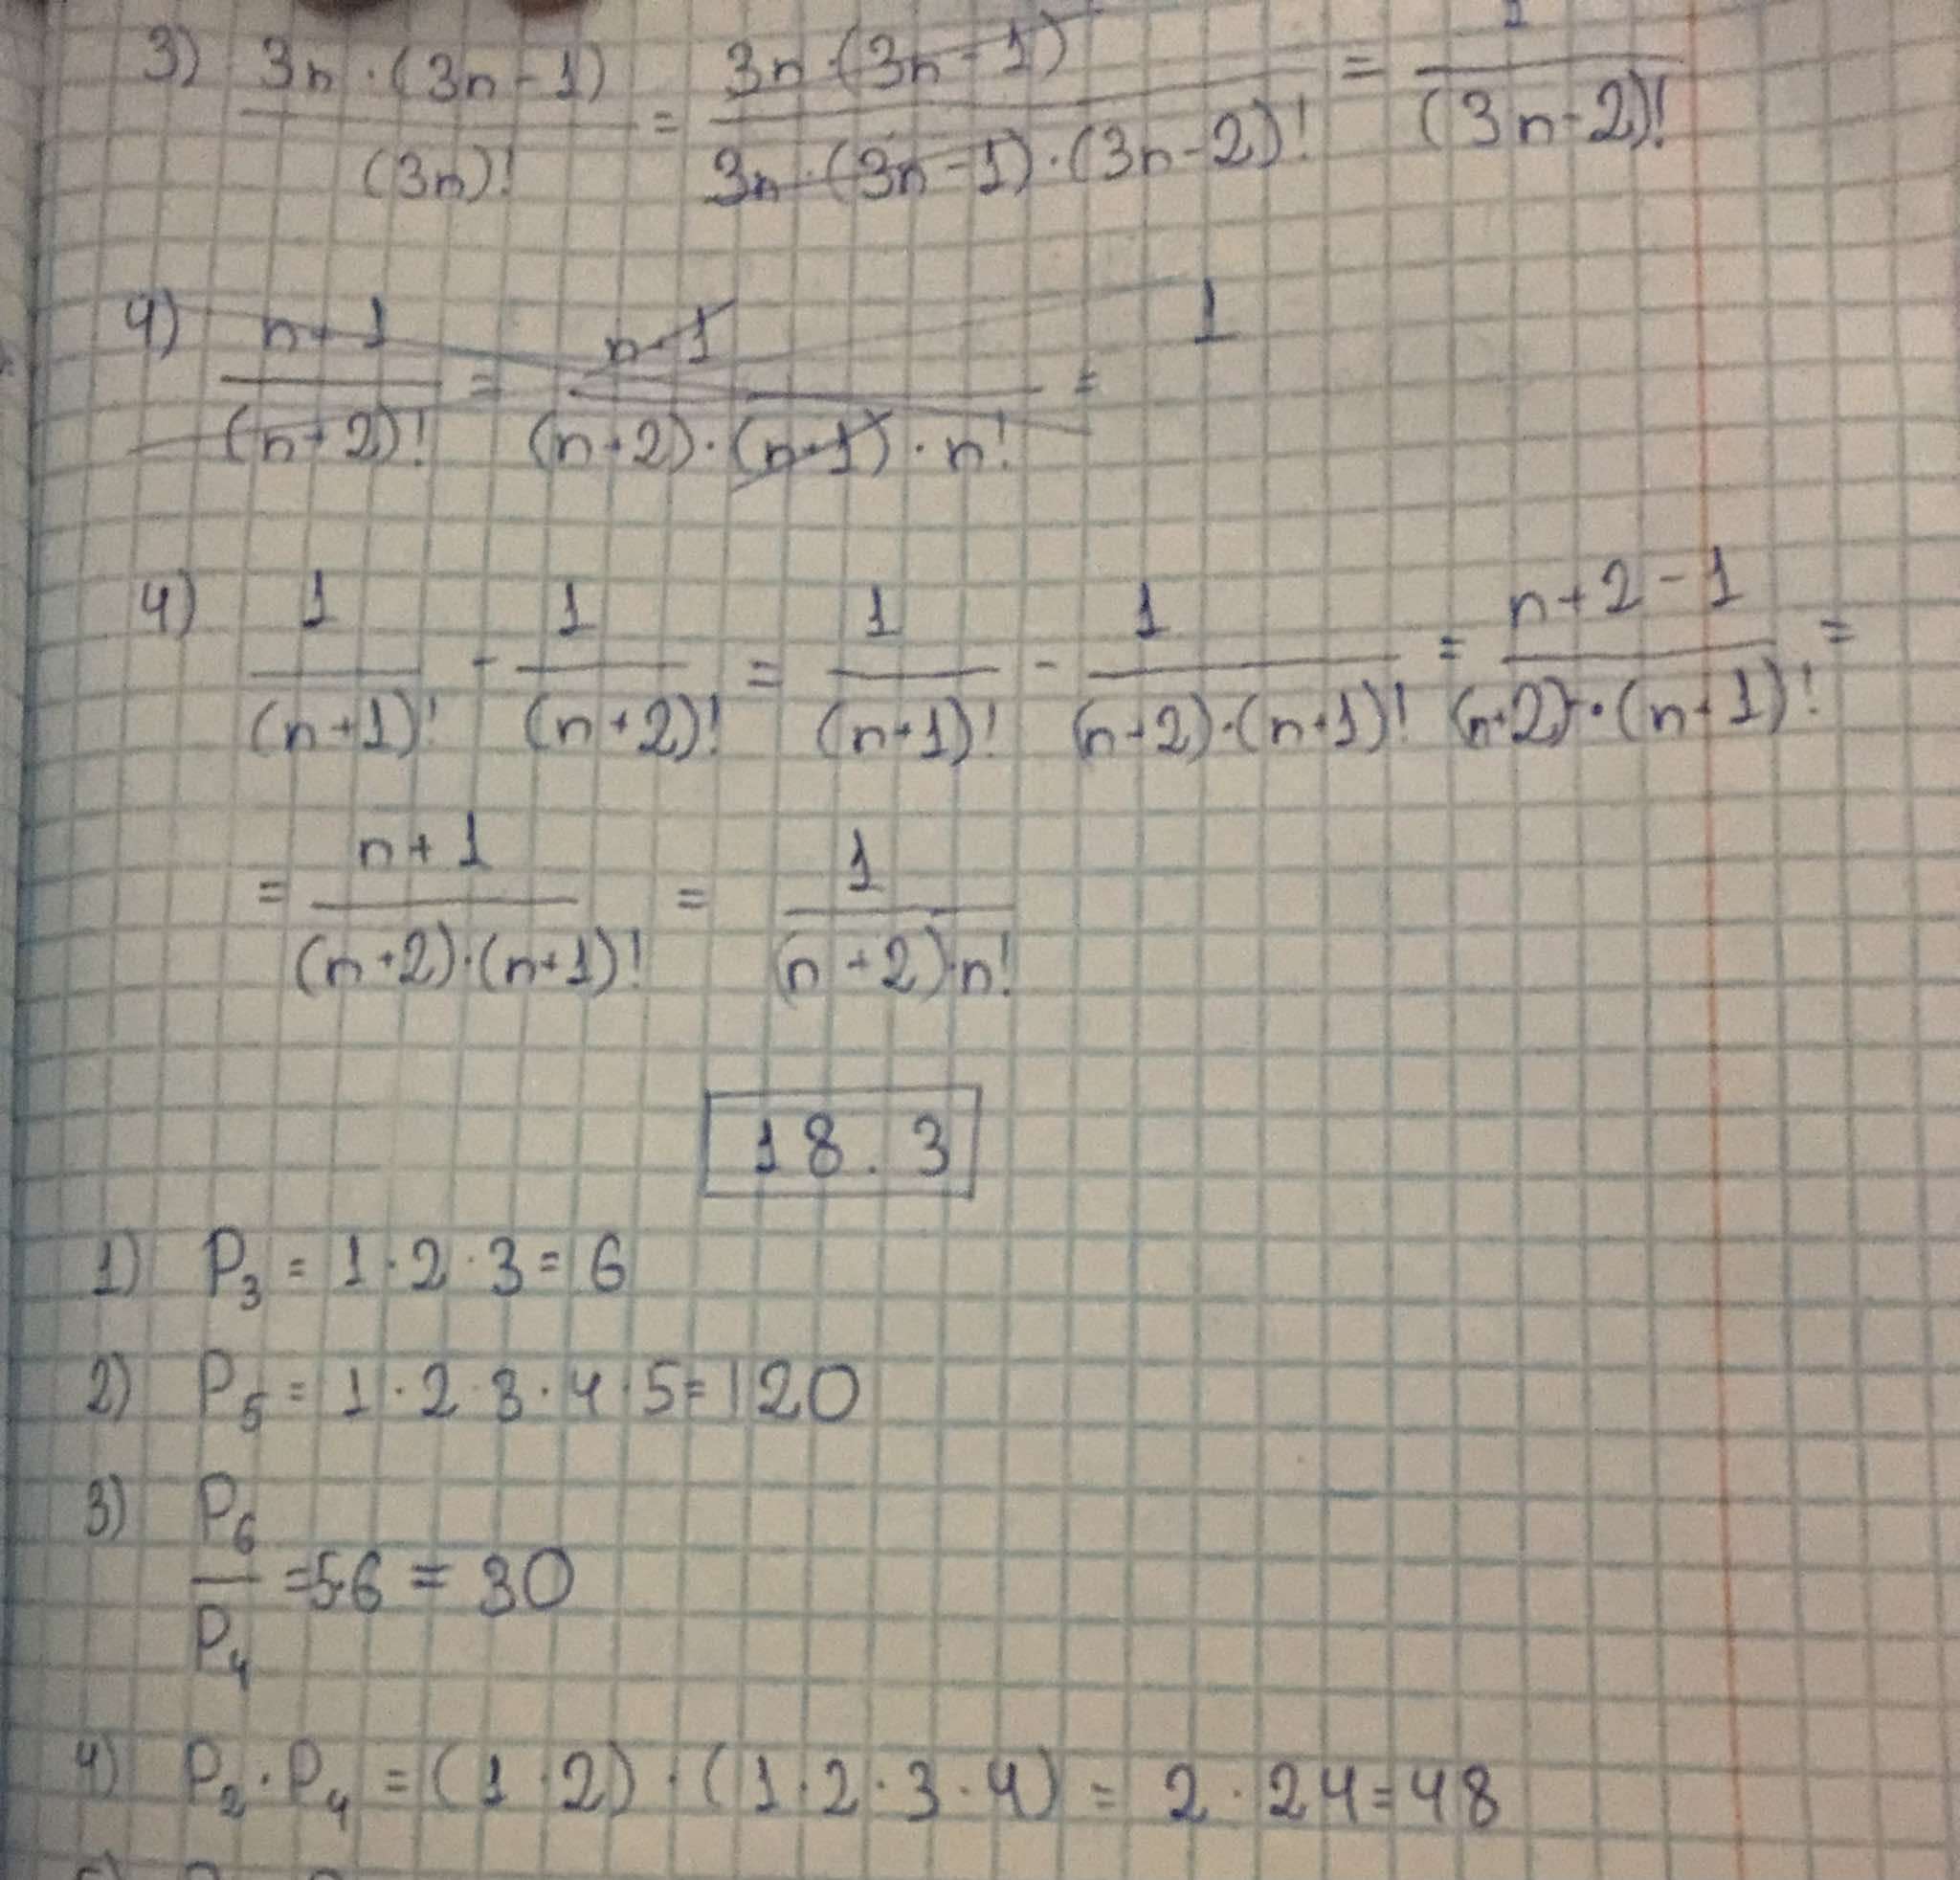 3) 3n·(3n-1)/(3n)! = 3n·(3n-1)/3n·(3n-1)·(3n-2)! = 1/(3n-2)!
4) n+1/(n+2)! = n+1/(n+2)·(n+1)·n! = 1
4) 1/(n+1)! - 1/(n+2)! = 1/(n+1)! - 1/(n+2)·(n+1)! = n+2-1/(n+2)·(n+1)! =
= n+1/(n+2)·(n+1)! = 1/(n+2)·n!
18.3
1) P₃ = 1·2·3 = 6
2) P₅ = 1·2·3·4·5 = 120
3) P₆/P₄ = 5·6 = 30
4) P₂·P₄ = (1·2)·(1·2·3·4) = 2·24 = 48